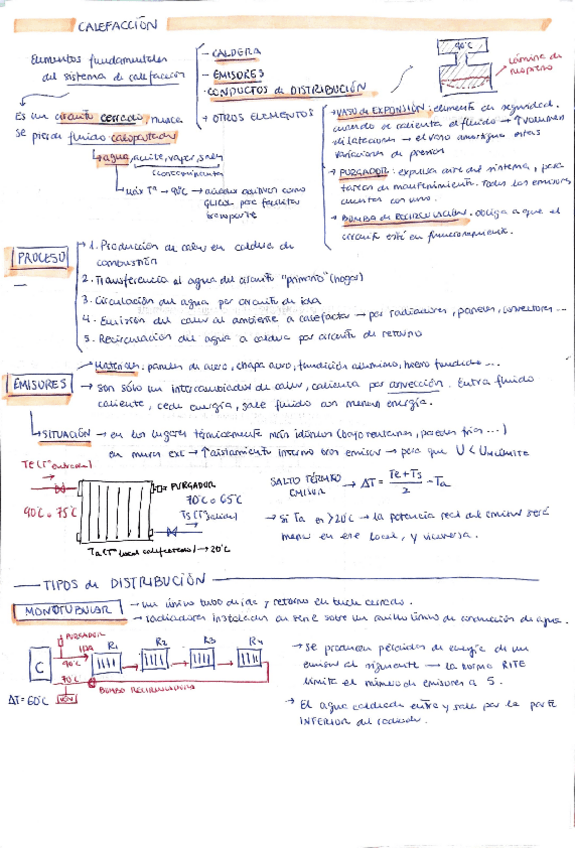 CALEFACCIÓN
Elementos fundamentales
del sistema de calefacción
- CALDERA
- EMISORES
- CONDUCTOS de DISTRIBUCIÓN
+ OTROS ELEMENTOS
90°C
Lámina de
neopreno
Es un circuito cerrado, nunca
se pierde fluido caloportador
agua, aceite, vapor, sales
máx Tª → 90°C → añadir aditivos como
glicol para facilitar
transporte
→ VASO de EXPANSIÓN: elemento de seguridad.
cuando se calienta el fluido → ↑ volumen
dilataciones → el vaso amortigua estas
variaciones de presión
→ PURGADOR: expulsa aire del sistema, para
tareas de mantenimiento. Todos los emisores
cuentan con uno.
→ BOMBA de RECIRCULACIÓN: obliga a que el
circuito esté en funcionamiento.
PROCESO
1. Producción de calor en caldera de
combustión
2. Transferencia al agua del circuito "primario" (hogar)
3. Circulación del agua por circuito de ida
4. Emisión del calor al ambiente a calefactar → por radiadores, paneles, convectores...
5. Recirculación del agua a caldera por circuito de retorno
EMISORES
→ Materiales: paneles de acero, chapa acero, fundición aluminio, hierro fundido...
→ son sólo un intercambiador de calor, calienta por convección. Entra fluido
caliente, cede energía, sale fluido con menos energía.
SITUACIÓN → en los lugares térmicamente más idóneos (bajo ventanas, paredes frías...)
en muros ext → ↑ aislamiento interno tras emisor → para que U < U límite
Te (Tª entrada)
90°C o 75°C
PURGADOR
70°C o 65°C
Ts (Tª salida)
Ta (Tª local calefactado) → 20°C
SALTO TÉRMICO
EMISOR → ΔT = Te+Ts/2 - Ta
→ Si Ta es >20°C → la potencia real del emisor será
menor en ese local, y viceversa.
TIPOS de DISTRIBUCIÓN
MONOTUBULAR
→ un único tubo de ida y retorno en bucle cerrado.
→ radiadores instalados en serie sobre un anillo único de conducción de agua.
PURGADOR
IDA
C
90°C
70°C
R1
R2
R3
R4
BOMBA RECIRCULADORA
ΔT = 60°C
→ Se producen pérdidas de energía de un
emisor al siguiente → la norma RITE
limita el número de emisores a 5.
→ El agua caldeada entra y sale por la parte
INFERIOR del radiador.